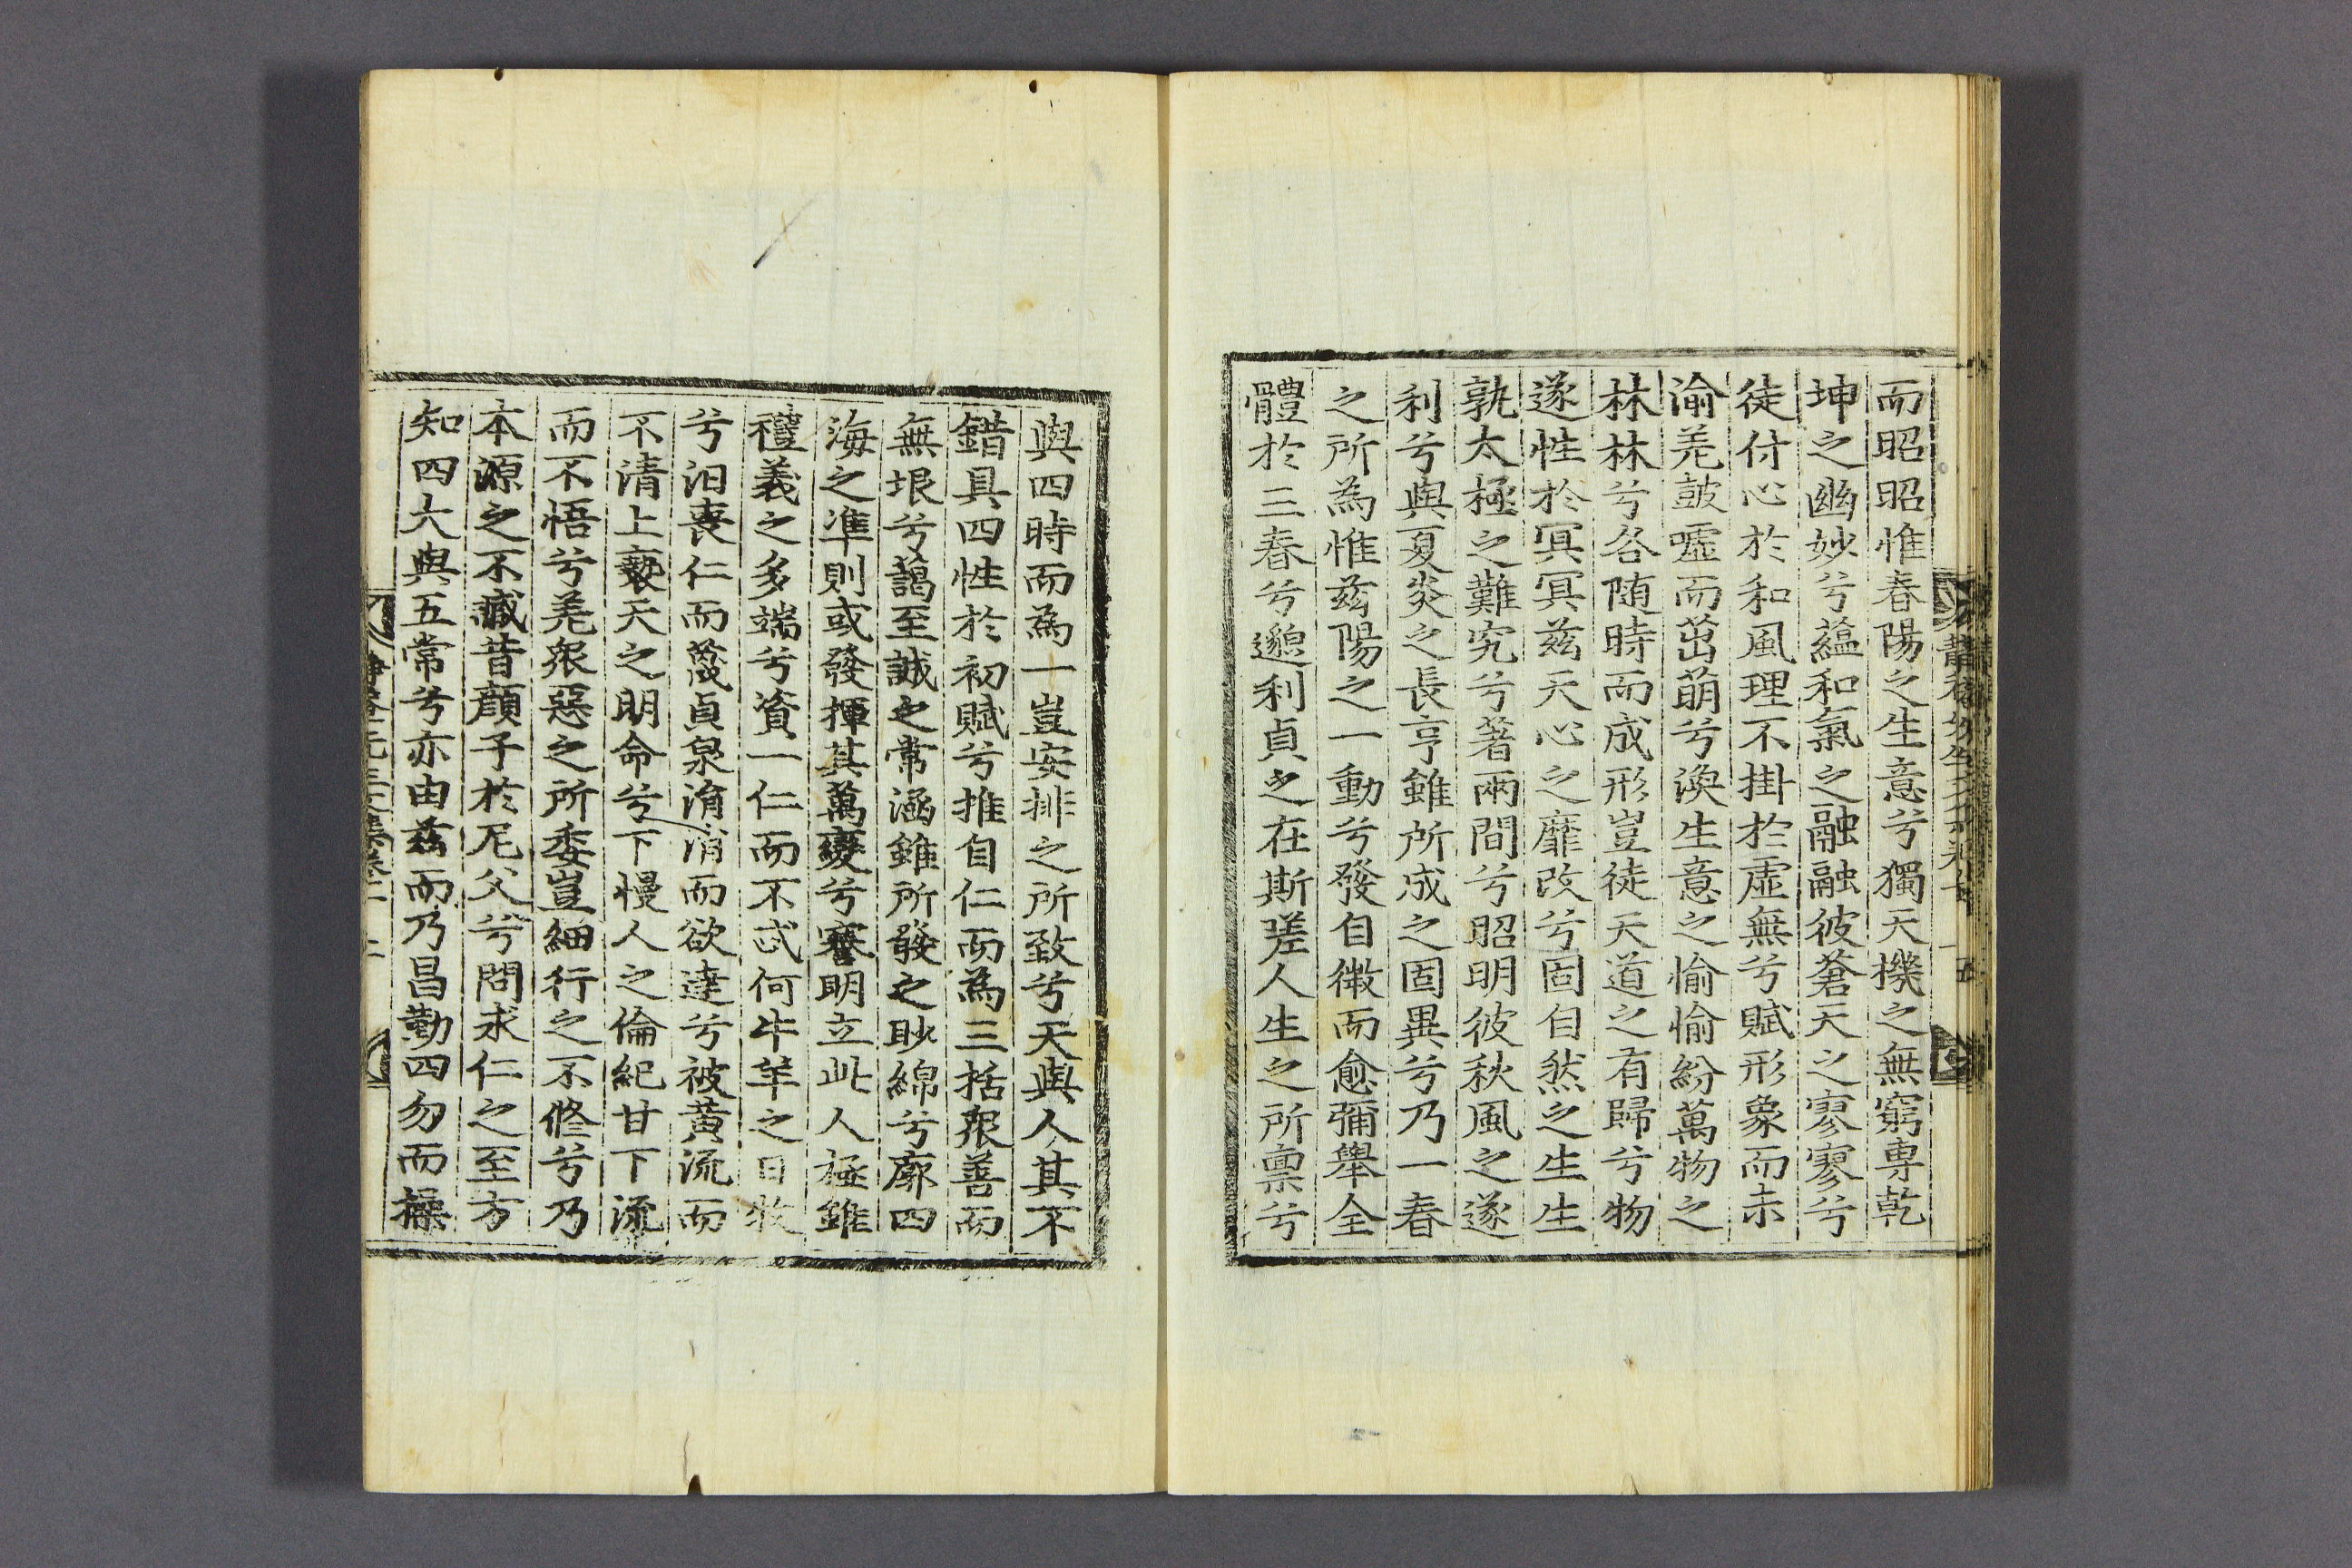 而昭昭惟春陽之生意兮獨天機之無窮專乾
坤之幽妙兮蘊和氣之融融彼蒼天之寥寥兮
徒付心於和風理不掛於虛無兮賦形象而未
渝羌鼓噓而茁萌兮渙生意之愉愉紛萬物之
林林兮各随時而成形豈徒天道之有歸兮物
遂性於冥冥茲天心之靡改兮固自然之生生
孰太極之難究兮著兩間兮昭明彼秋風之遂
利兮與夏炎之長亨雖所成之固異兮乃一春
之所為惟茲陽之一動兮發自微而愈彌舉全
體於三春兮邈利貞之在斯嗟人生之所禀兮
與四時而為一豈安排之所致兮天與人其不
錯具四性於初賦兮推自仁而為三括衆善而
無垠兮藹至誠之常涵雖所發之眇綿兮廓四
海之準則或發揮其萬變兮騫明立此人極雖
禮義之多端兮資一仁而不忒何牛羊之日牧
兮汨喪仁而蔑貞泉淯淯而欲達兮被黃流而
不清上褻天之明命兮下慢人之倫紀甘下流
而不悟兮羌衆惡之所委豈細行之不修兮乃
本源之不臧昔顔子於尼父兮問求仁之至方
知四大與五常兮亦由茲而乃昌勤四勿而操